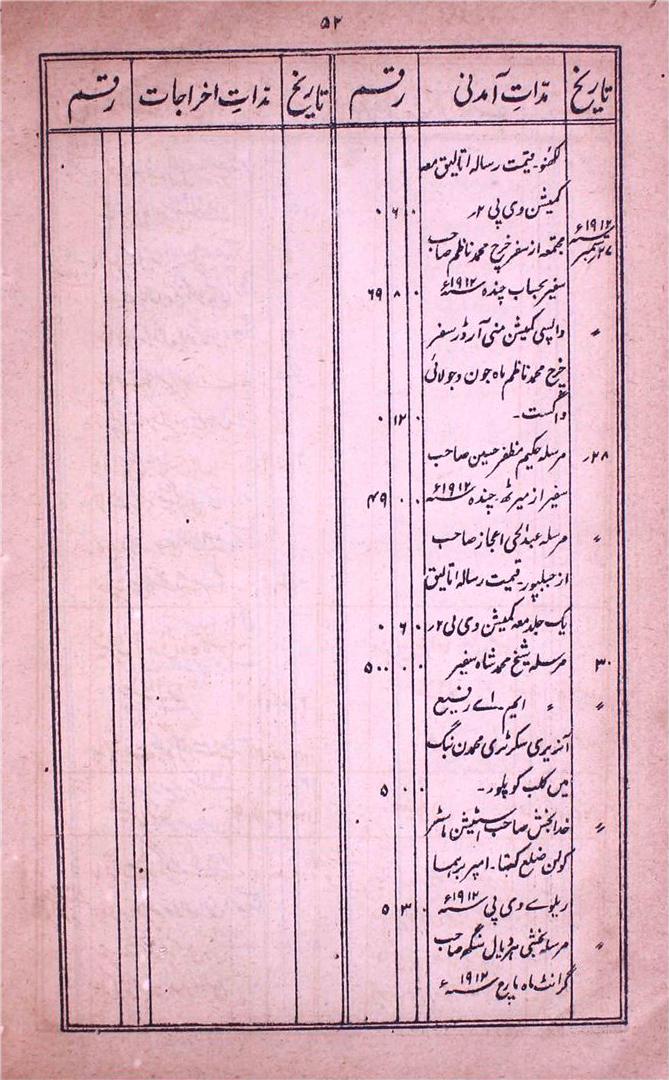 ۵۲
تاریخ مدّاتِ آمدنی رقم تاریخ مدّاتِ اخراجات رقم
لکھنؤ۔ قیمت رسالہ اتالیق معہ
کمیشن وی پی ۲؍ ۰ ۶ ۰
۲۷؍ دسمبر ۱۹۱۲ء مجتمعہ از سفر خرچ محمد ناظم صاحب
سفیر بحساب چندہ ۱۹۱۲ء ۰ ۸ ۶۹
〃 واپسی کمیشن منی آرڈر سفر
خرچ محمد ناظم ماہ جون و جولائی
و اگست۔ ۰ ۱۲ ۰
۲۸؍ مرسلہ حکیم مظفر حسین صاحب
سفیر از میرٹھ۔ چندہ ۱۹۱۲ء ۰ ۰ ۴۹
〃 مرسلہ عبدالحی اعجاز صاحب
از جبلپور۔ قیمت رسالہ اتالیق
یک جلد معہ کمیشن وی پی ۲؍ ۰ ۶ ۰
۳۰ مرسلہ شیخ محمد شاہ سفیر ۰ ۰ ۵۰۰
〃 〃 〃 ایم۔ اے رفیع
آنریری سکرٹری محمدن ینگ
مین کلب کوپلور۔ ۰ ۰ ۵
〃 خدابخش صاحب اسٹیشن ماسٹر
کولن ضلع کتھا۔ اپر برہما
ریلوے وی پی ۱۹۱۲ء ۰ ۳ ۵
〃 مرسلہ بخشی ہردیال سنگھ صاحب
گرانٹ ماہ مارچ ۱۹۱۲ء